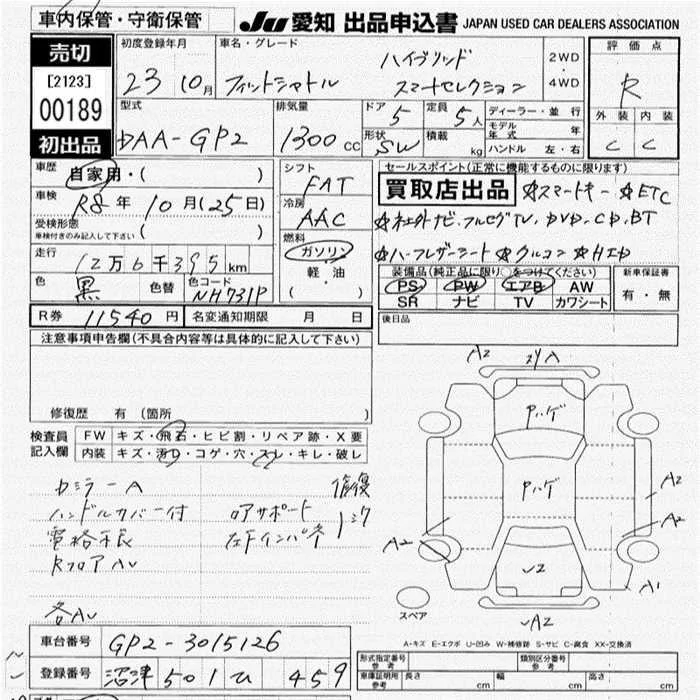 車内保管・守衛保管
JU 愛知 出品申込書 JAPAN USED CAR DEALERS ASSOCIATION
売切
[2123]
00189
初出品
初度登録年月
23 10月
車名・グレード
ハイブリッド
フィットシャトル スマートセレクション
2WD
・
4WD
評価点
R
外装 内装
C C
型式
DAA-GP2
排気量
1300 cc
ドア
5
定員
5人
形状
SW
積載
kg
ディーラー・並行
モデル年式 年
ハンドル 左・右
車歴
自家用・( )
車検
R8年10月(25日)
受検形態
車検付きのみ記入して下さい ( )
走行
12万6千395km
色
黒
色替
色コード
NH731P
シフト
FAT
冷房
AAC
燃料
ガソリン
軽油
( )
セールスポイント(正常に機能するものに限ります)
買取店出品 ☆スマートキー ☆ETC
☆社外ナビ.フルセグTV.DVD.CD.BT
☆ハーフレザーシート ☆クルコン ☆HID
装備品(純正品に限り○をつけてください)
PS PW エアB AW
SR ナビ TV カワシート
新車保証書
有・無
R券 11540円 名変通知期限 月 日
後日品
注意事項申告欄(不具合内容等は具体的に記入して下さい)
修復歴 有(箇所 )
検査員記入欄
FW キズ・飛石・ヒビ割・リペア跡・X要
内装 キズ・汚れ・コゲ・穴・スレ・キレ・破レ
カミラーA
ハンドルカバー付
電格不良
RフロアAU
各AU
ロアサポート
左Fインパネ
修復
A2
A
Pハゲ
Pハゲ
A2
A2
A2
A1
A2
スペア
A-キズ E-エクボ U-凹み W-補修跡 S-サビ C-腐食 XX-交換済
車台番号 GP2-3015126
登録番号 沼津 501 ひ 459
形式指定番号参考
類別区分番号参考
車庫証明用参考 長さ cm 幅 cm 高さ cm